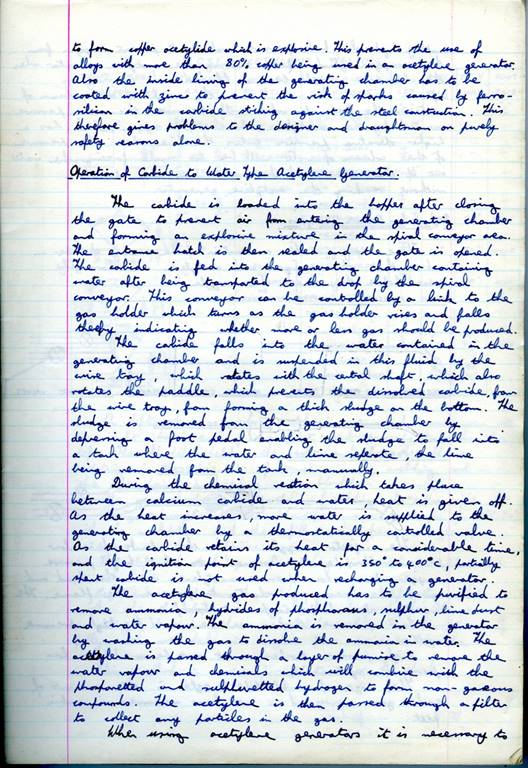 to form copper acetylide which is explosive. This prevents the use of
alloys with more than 80% copper being used in an acetylene generator.
Also the inside lining of the generating chamber has to be
coated with zinc to prevent the risk of sparks caused by ferro-
silicon in the carbide striking against the steel construction. This
therefore gives problems to the designer and draughtsman on purely
safety reasons alone.
Operation of Carbide to Water Type Acetylene Generator.
The carbide is loaded into the hopper after closing
the gate to prevent air from entering the generating chamber
and forming an explosive mixture in the spiral conveyor area.
The entrance hatch is then sealed and the gate is opened.
The carbide is fed into the generating chamber containing
water after being transported to the drop by the spiral
conveyor. This conveyor can be controlled by a link to the
gas holder which turns as the gas holder rises and falls
thereby indicating whether more or less gas should be produced.
The carbide falls into the water contained in the
generating chamber and is suspended in this fluid by the
wire tray, which rotates with the central shaft, which also
rotates the paddle, which prevents the dissolved carbide, from
the wire tray, from forming a thick sludge on the bottom. The
sludge is removed from the generating chamber by
depressing a foot pedal enabling the sludge to fall into
a tank where the water and lime seperate, the lime
being removed from the tank, manually.
During the chemical reaction which takes place
between calcium carbide and water, heat is given off.
As the heat increases, more water is supplied to the
generating chamber by a thermostatically controlled valve.
As the carbide retains its heat for a considerable time,
and the ignition point of acetylene is 350° to 400°C, partially
spent carbide is not used when recharging a generator.
The acetylene gas produced has to be purified to
remove ammonia, hydrides of phosphorus, sulphur, lime dust
and water vapour. The ammonia is removed in the generator
by washing the gas to dissolve the ammonia in water. The
acetylene is passed through a layer of pumice to remove the
water vapour and chemicals which will combine with the
phosphoretted and sulphuretted hydrogen to form non-gaseous
compounds. The acetylene is then passed through a filter
to collect any particles in the gas.
When using acetylene generators it is necessary to